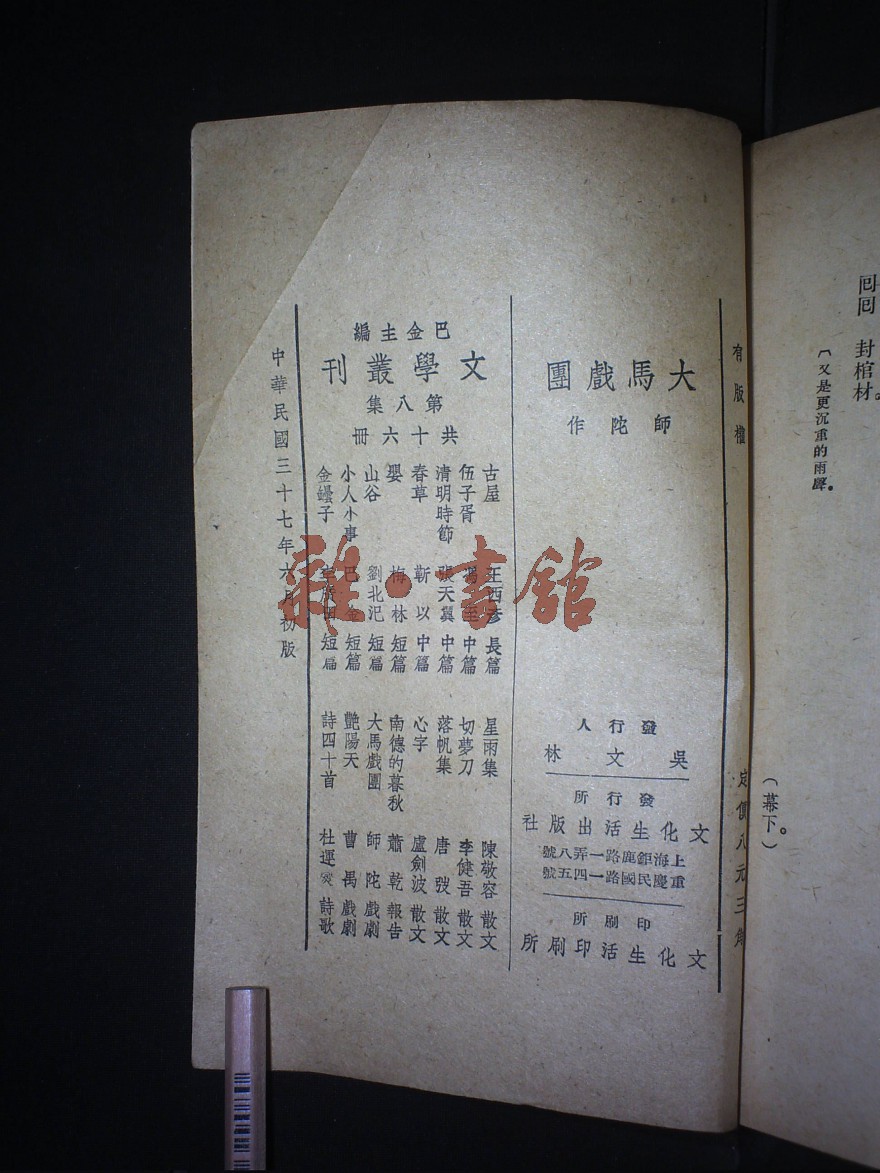 囘囘 封棺材。
(又是更沉重的雨聲。
(幕下。)
有版權 定價八元三角
大馬戲團
師陀作
發行人
吳文林
發行所
文化生活出版社
上海鉅鹿路一弄八號
重慶民國路一四五號
印刷所
文化生活印刷所
巴金主編
文學叢刊
第八集
共十六冊
古屋 王西彥 長篇
伍子胥 馮至 中篇
清明時節 張天翼 中篇
春草 靳以 中篇
嬰 梅林 短篇
山谷 劉北汜 短篇
小人小事 巴金 短篇
金鏝子 短篇
星雨集 陳敬容 散文
切夢刀 李健吾 散文
落帆集 唐弢 散文
心字 盧劍波 散文
南德的暮秋 蕭乾 報告
大馬戲團 師陀 戲劇
艷陽天 曹禺 戲劇
詩四十首 杜運燮 詩歌
中華民國三十七年六月初版
雜·書館